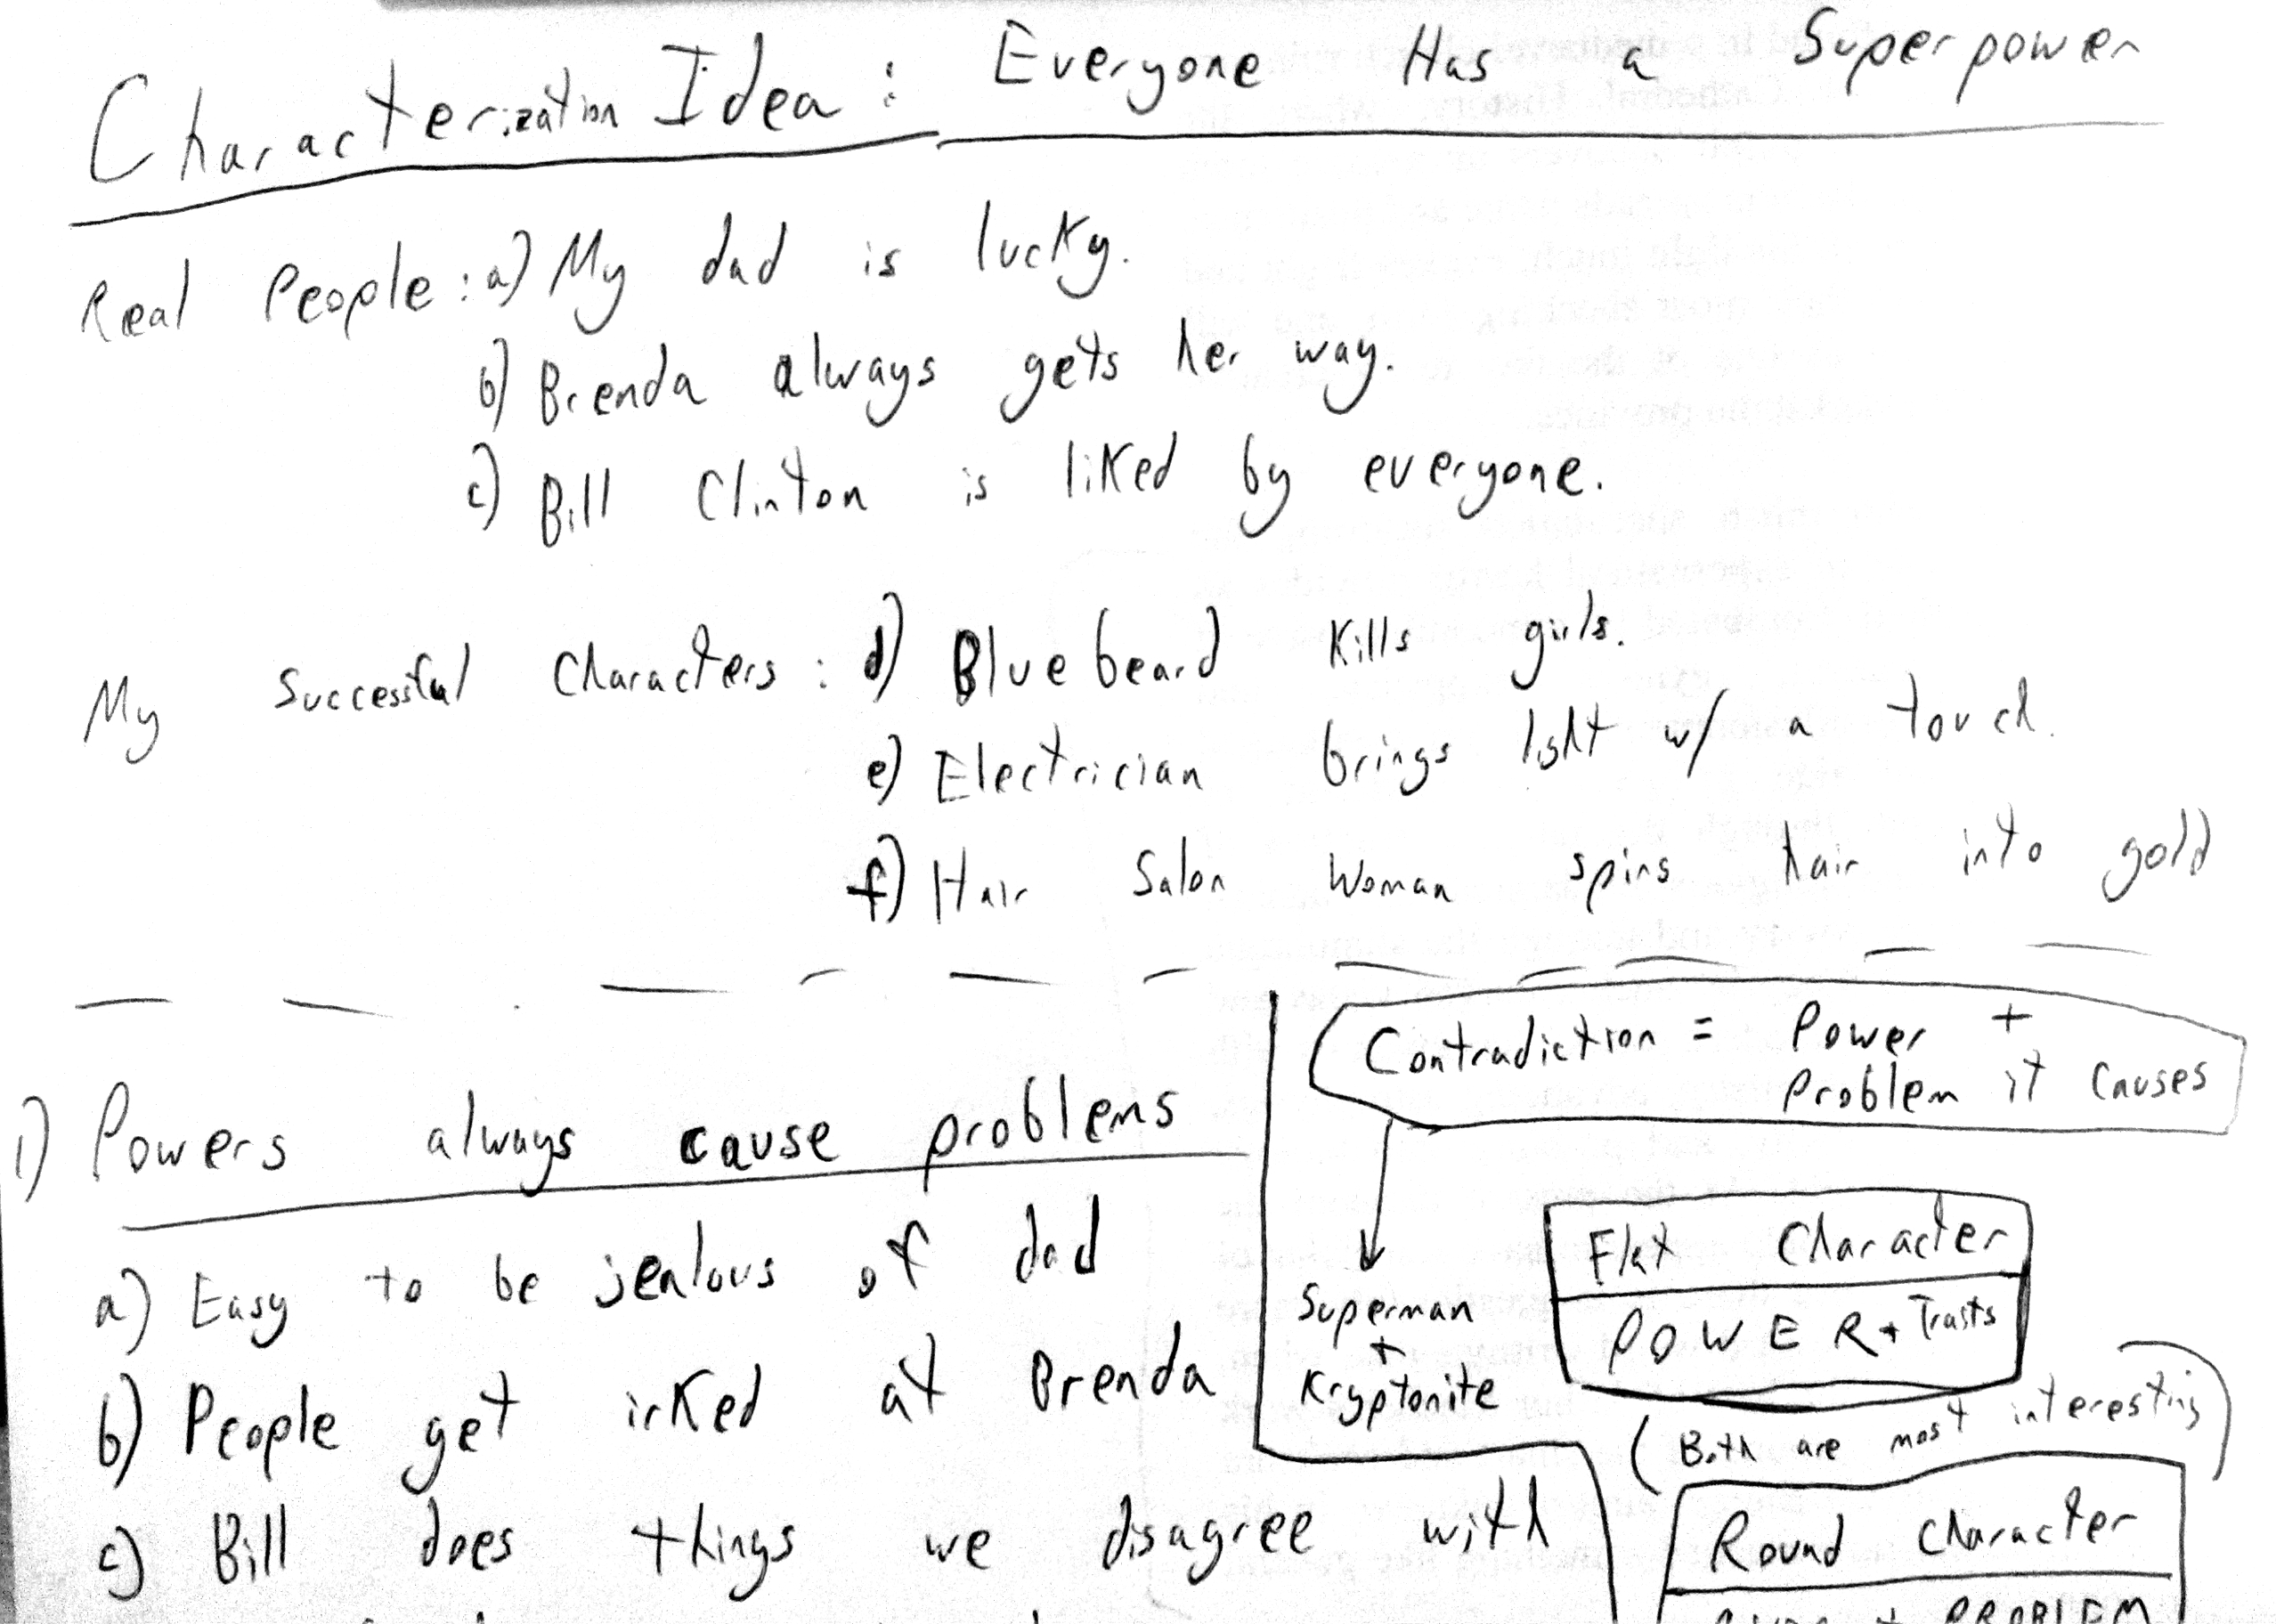 Characterization Idea: Everyone Has a Superpower
Real People: a) My dad is lucky.
b) Brenda always gets her way.
c) Bill Clinton is liked by everyone.
My Successful Characters: d) Bluebeard kills girls.
e) Electrician brings light w/ a touch.
f) Hair Salon Woman spins hair into gold
1) Powers always cause problems
a) Easy to be jealous of dad
b) People get irked at Brenda
c) Bill does things we disagree with
Contradiction = Power +
Problem it causes
Superman
+
Kryptonite
Flat Character
POWER + Traits
(Both are most interesting)
Round Character
PROBLEM